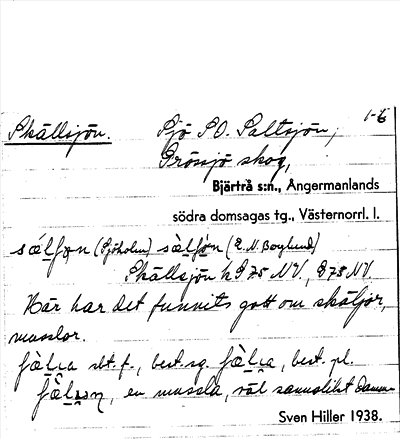 Skällsjön. Sjö S.O. Saltsjön, 1-6
Grössjö skog,
Bjärtrå s:n., Ångermanlands
södra domsagas tg., Västernorrl. l.
(Sjöholm) (E. N. Boglund)
Skällsjön k § 75 NV., § 78 NV
Här har det funnits gott om skäljor,
musslor.
fäl̯a obt. f., best. sg. fäl̯a, best. pl.
en mussla, väl sannolikt damm-
Sven Hiller 1938.